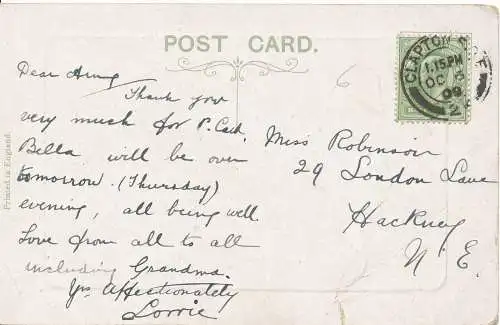 POST CARD.
CLAPTON
1.15 PM
OC 6
09
Dear
Thank you
very much for P. Card,
Bella will be over
tomorrow. (Thursday)
evening, all being well.
Love from all to all
including Grandma.
Yrs Affectionately
Lorrie
Miss Robinson
29 London Lane
Hackney
N.E.
Printed in England.
6